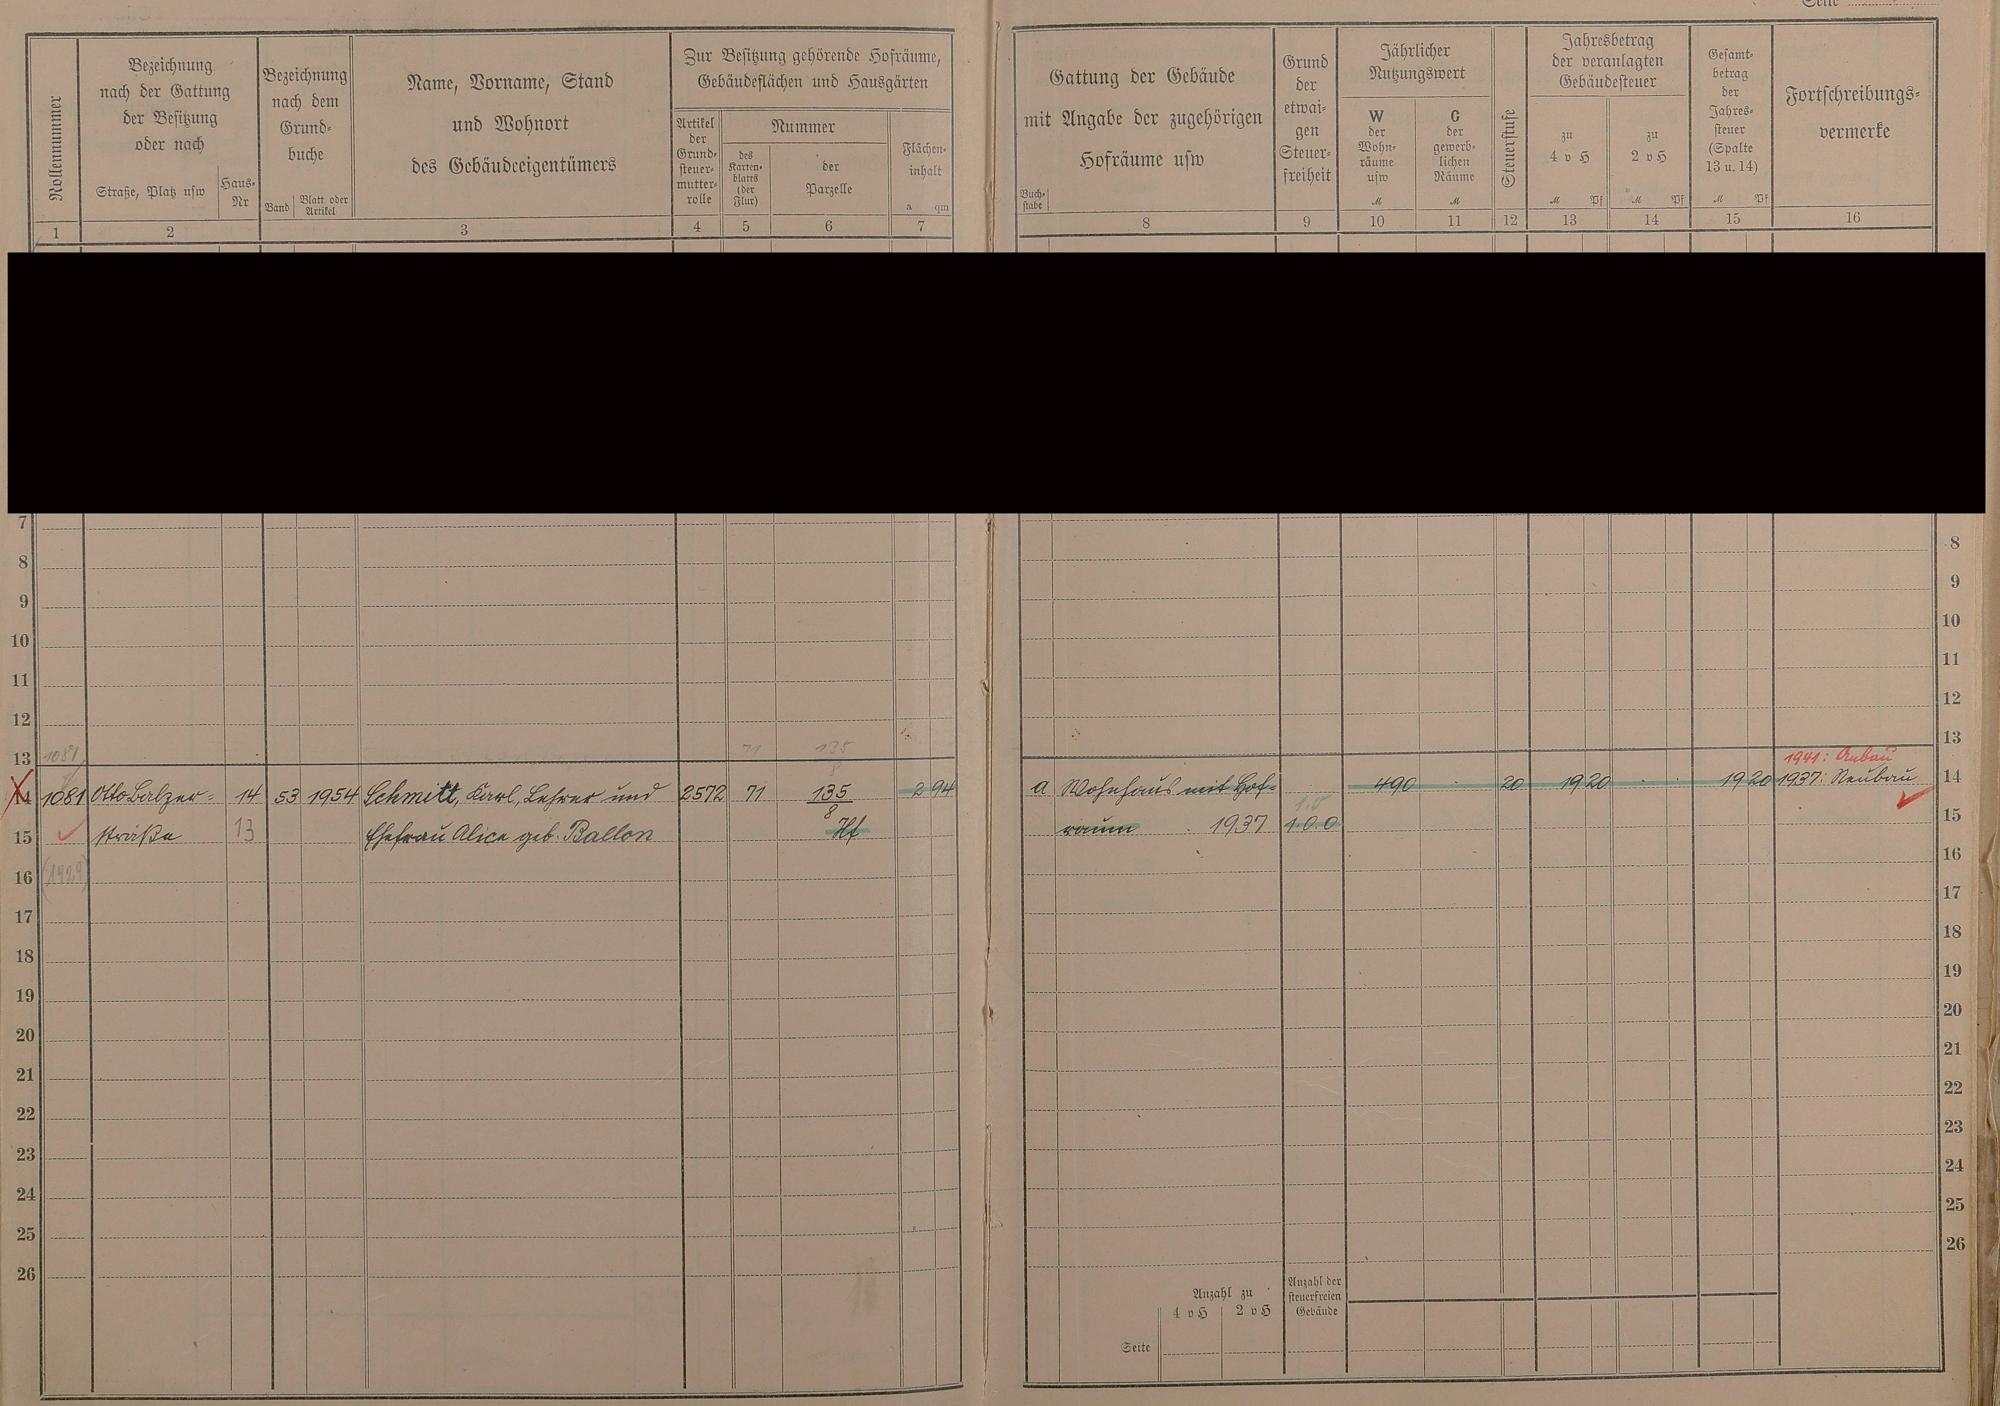 Seite
Rollennummer
Bezeichnung
nach der Gattung
der Besitzung
oder nach
Straße, Platz usw
Haus-
Nr
Bezeichnung
nach dem
Grund-
buche
Band
Blatt oder
Artikel
Name, Vorname, Stand
und Wohnort
des Gebäudeeigentümers
Zur Besitzung gehörende Hofräume,
Gebäudeflächen und Hausgärten
Artikel
der
Grund-
steuer-
mutter-
rolle
Nummer
des
Karten-
blatts
(der
Flur)
der
Parzelle
Flächen-
inhalt
a qm
Gattung der Gebäude
mit Angabe der zugehörigen
Hofräume usw
Buch-
stabe
Grund
der
etwai-
gen
Steuer-
freiheit
Jährlicher
Nutzungswert
W
der
Wohn-
räume
usw
M
G
der
gewerb-
lichen
Räume
M
Steuerstufe
Jahresbetrag
der veranlagten
Gebäudesteuer
zu
4 v H
M Pf
zu
2 v H
M Pf
Gesamt-
betrag
der
Jahres-
steuer
(Spalte
13 u. 14)
M Pf
Fortschreibungs-
vermerke
1 2 3 4 5 6 7 8 9 10 11 12 13 14 15 16
7
8 8
9 9
10 10
11 11
12 12
13 1081 71 135 13
8
1941: Anbau
14 1081 Otto Balzer- 14 53 1954 Schmitt, Karl, Lehrer und 2572 71 135 2 94 a Wohnhaus mit Hof- 490 20 19 20 19 20 1937: Neubau 14
8
15 straße 13 Ehefrau Alice geb. Ballon Hf raum 1937 15
16 (1429) 16
17 17
18 18
19 19
20 20
21 21
22 22
23 23
24 24
25 25
26 26
Anzahl zu
4 v H 2 v H
Anzahl der
steuerfreien
Gebäude
Seite